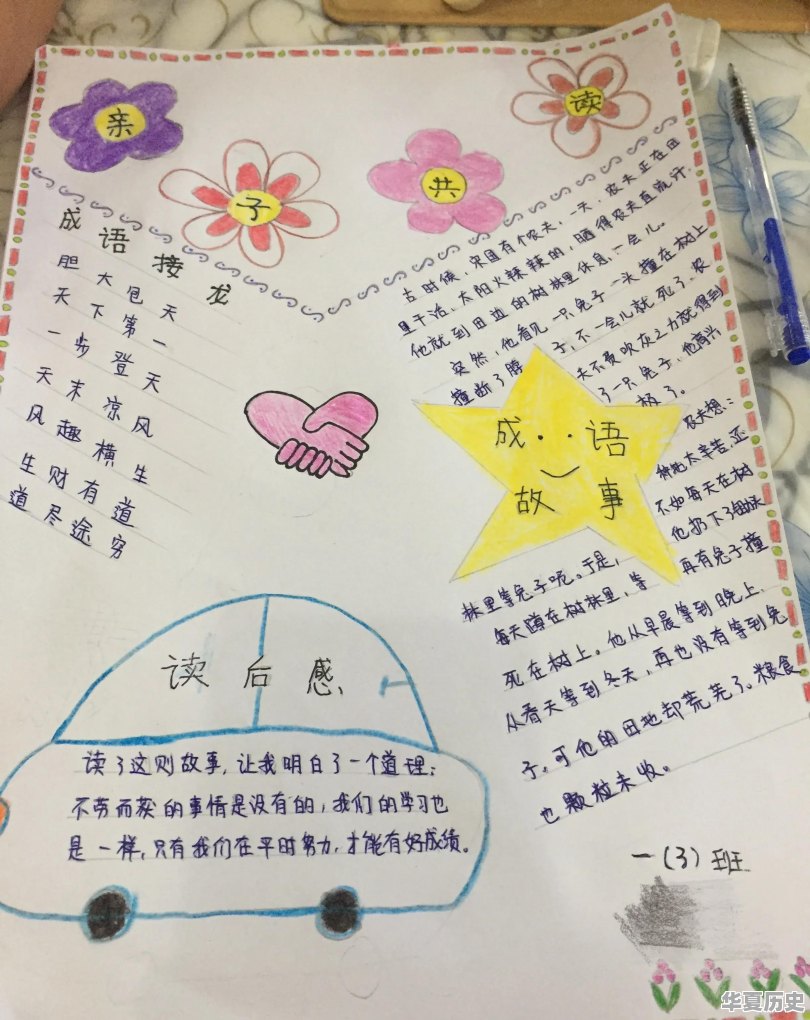 亲
子
共
读
成语接龙
胆大包天
天下第一
一步登天
天末凉风
风趣横生
生财有道
道尽途穷
古时候，宋国有个农夫，一天，农夫正在田
里干活，太阳火辣辣的，晒得农夫直流汗．
他就到田边的树林里休息一会儿。
突然，他看见一只兔子一头撞在树上
撞断了脖 子，不一会儿就死了．农
夫不费吹灰之力就得到
了一只兔子，他高兴
了。
成语
故事
农夫想：
种地太辛苦，还
不如每天在树
林里等兔子呢。于是， 他扔下了锄头
每天蹲在树林里，等 再有兔子撞
死在树上。他从早晨等到晚上．
从春天等到冬天，再也没有等到兔
子。可他的田地却荒芜了。粮食
也颗粒未收。
读后感
读了这则故事，让我明白了一个道理：
不劳而获的事情是没有的，我们的学习也
是一样，只有我们在平时努力，才能有好成绩。
一（3）班
华夏历史